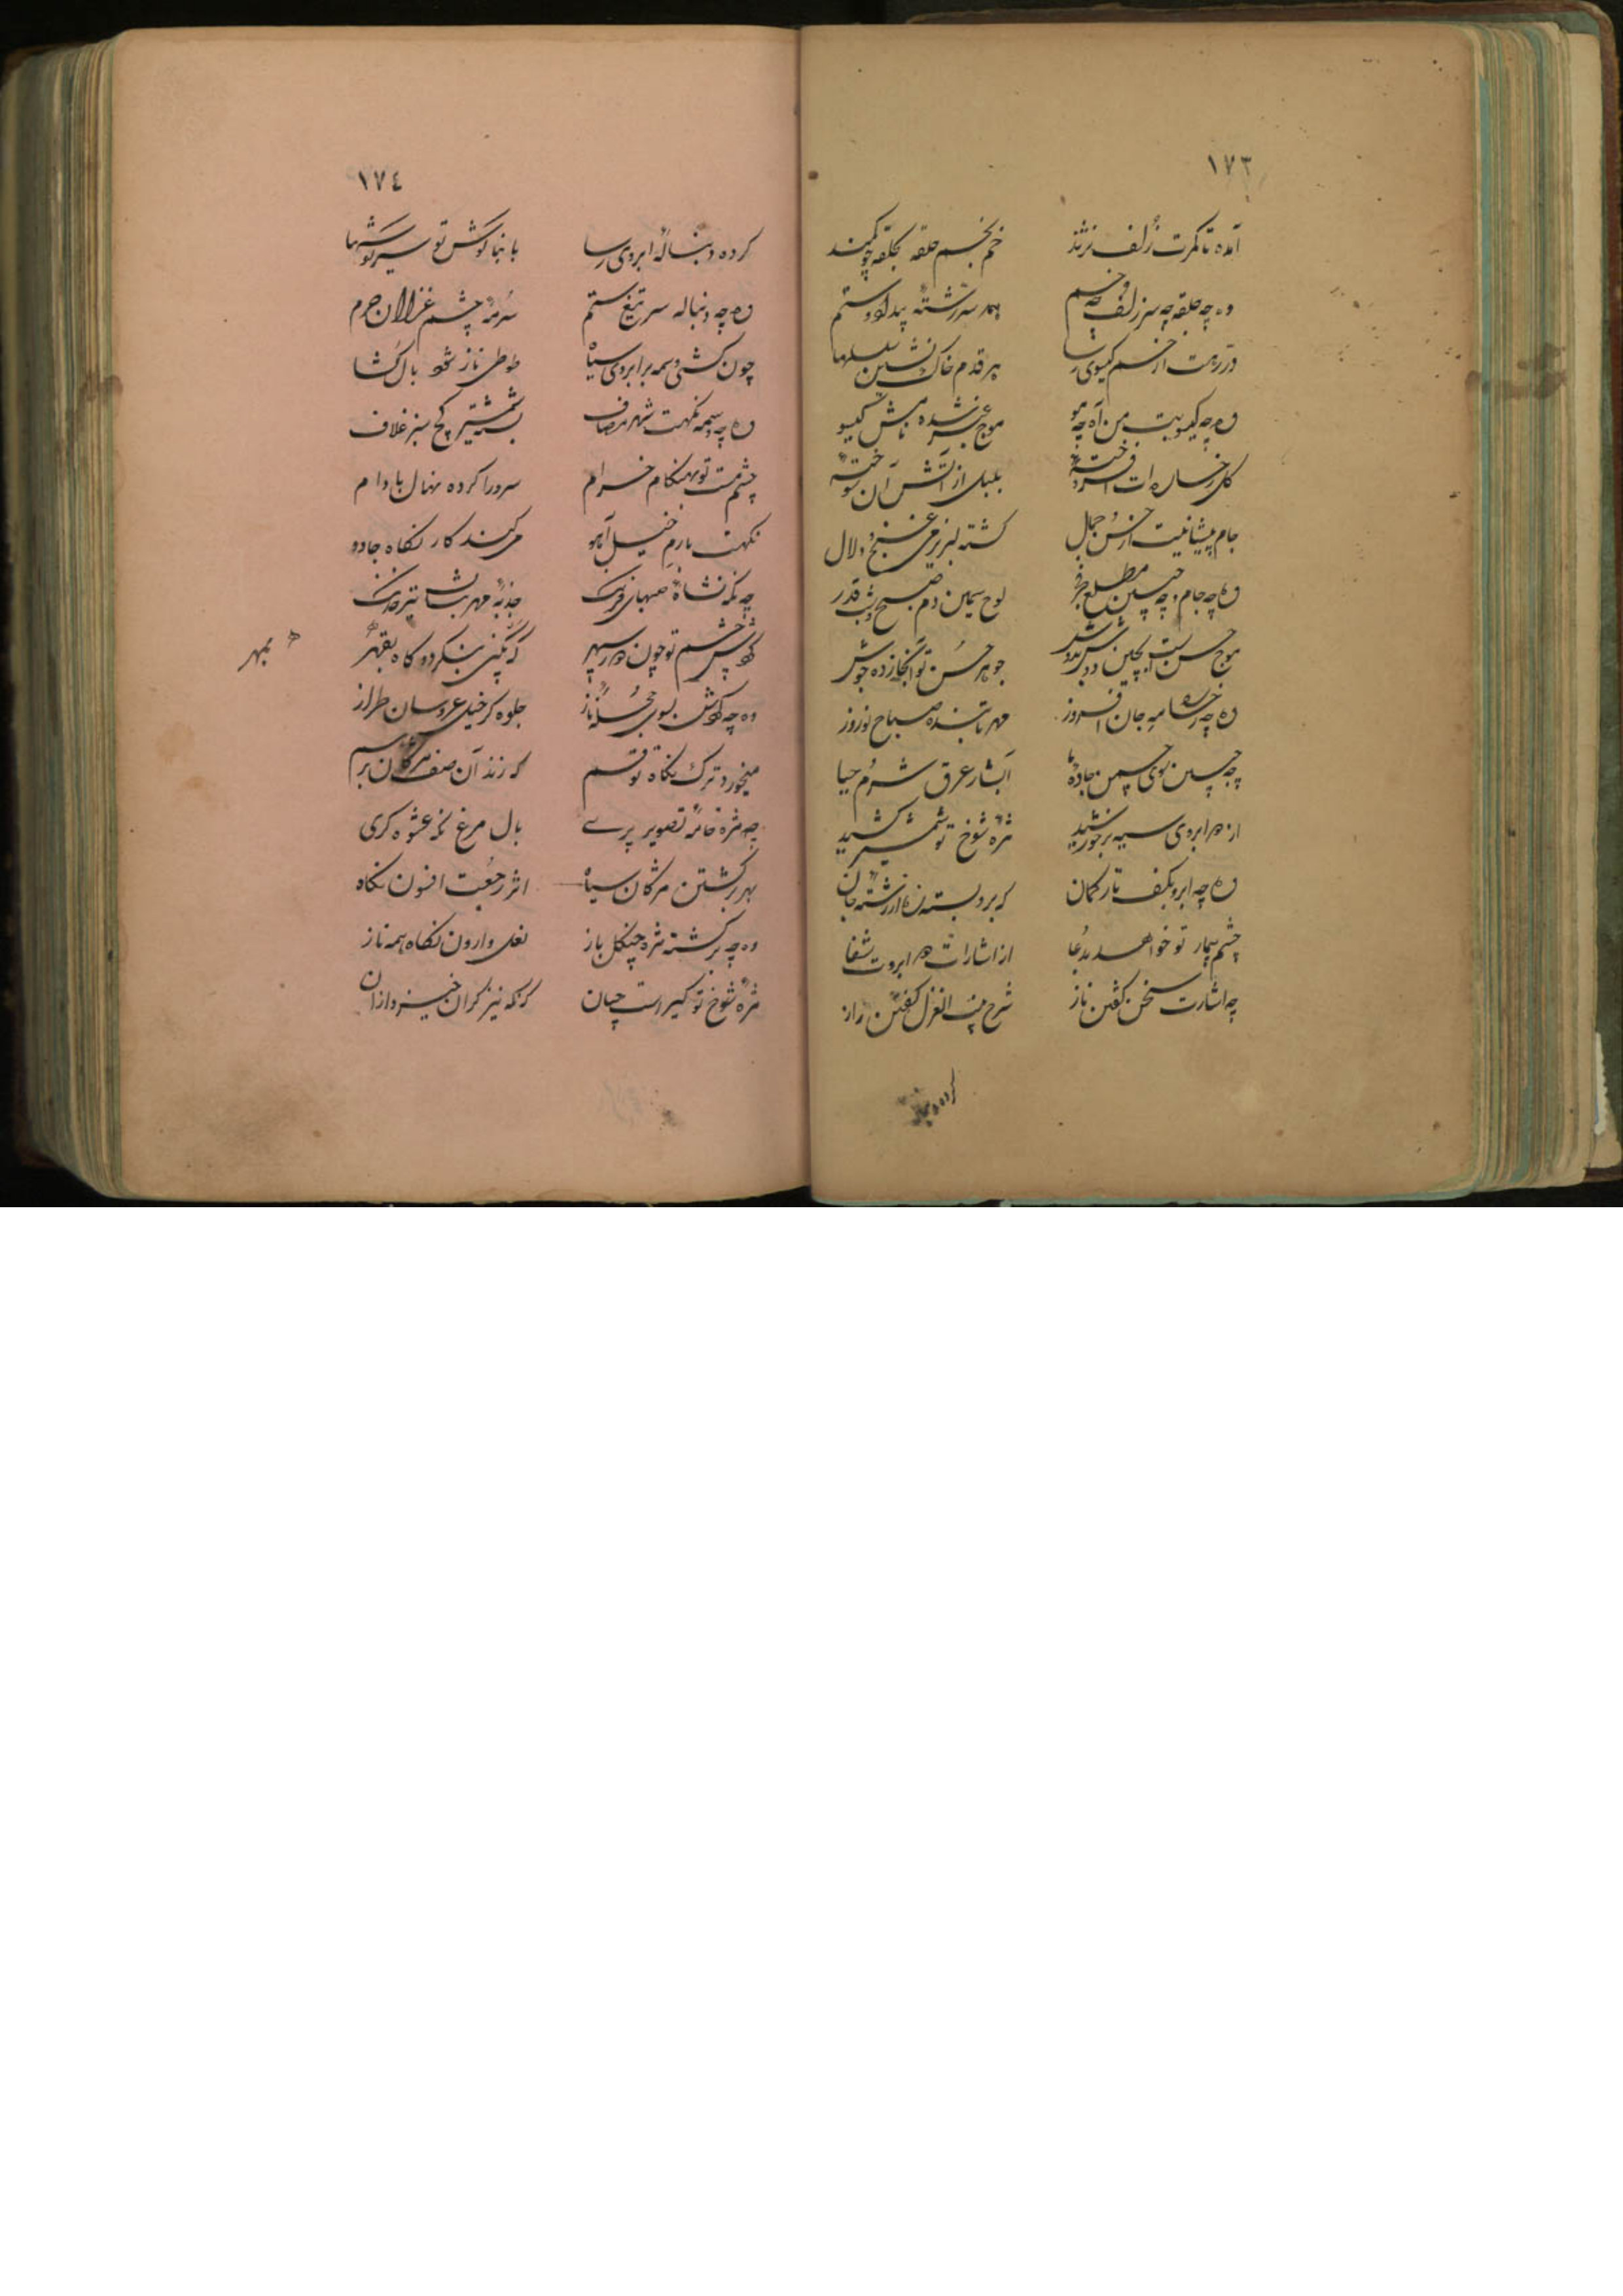 ١٧٣
آمده تا کمرت زلف نژند خم بخم حلقه بحلقه چو کمند
وه چه حلقه چه سر زلف چه خم همه سررشته بیداد و ستم
در رهت از خم کیسوی رسا هر قدم خاک نشین سلسلها
وه چه کیسوست من آه چه مو موج عنبر شده نامش کیسو
کل رخساره ات افروخته بلبل از آتش آن سوخته
جام پیشانیت از حسن جمال کشته لبریز می غنج و دلال
وه چه جام و چه جبین مطلع فجر لوح سیمین دم صبح شب قدر
موج حسن است بچین جوهر حسن تو آنجا زده جوش
وه چه رخسار مه جان افروز مهر تابنده صباح نوروز
چه جبین سوی چمن جاده ها آبشار عرق شرم حیا
از دو ابروی سیه بر خورشید مژه شوخ تو شمشیر کشید
وه چه ابرو بکف تار کمان که برو بسته زه از رشته جان
چشم بیمار تو خواهد بدعا از اشارات دو ابروت شفا
چه اشارت سخن کفتن ناز شرح بیت الغزل کفتن راز
کرده دنباله
١٧٤
کرده دنبالهٔ ابروی رسا با بناکوش تو سرکوشیها
وه چه دنباله سر تیغ ستم سرمهٔ چشم غزالان حرم
چون کشی وسمه بر ابروی سیاه طوطی ناز شود بال کشا
وه چه وسمه نکهت شهر مصاف شمشیر کج سبز غلاف
چشم مست تو بهنکام خرام سرو را کرده نهال بادام
نکهت با رم خیل آهو می کند کار نکاه جادو
چه نکه نشاهٔ صهبای فرنک جذبهٔ مهر تیر خدنک
کردش چشم تو چون دور سپهر که بکین بنکرد و کاه بقهر
بمهر
وه چه کردش بسوی حجلهٔ ناز جلوه کر خیل عروسان طراز
میخورد ترک نکاه تو قسم که زند آن صف مژکان برهم
چه مژه خامهٔ تصویر پری بال مرغ نکه عشوه کری
بهر برکشتن مژکان سیاه اثر رجعت افسون نکاه
وه چه برکشته مژه چنکل باز نعل وارون نکاه همه ناز
مژه شوخ تو کیراست چنان که نکه نیز کران خیزد ازان